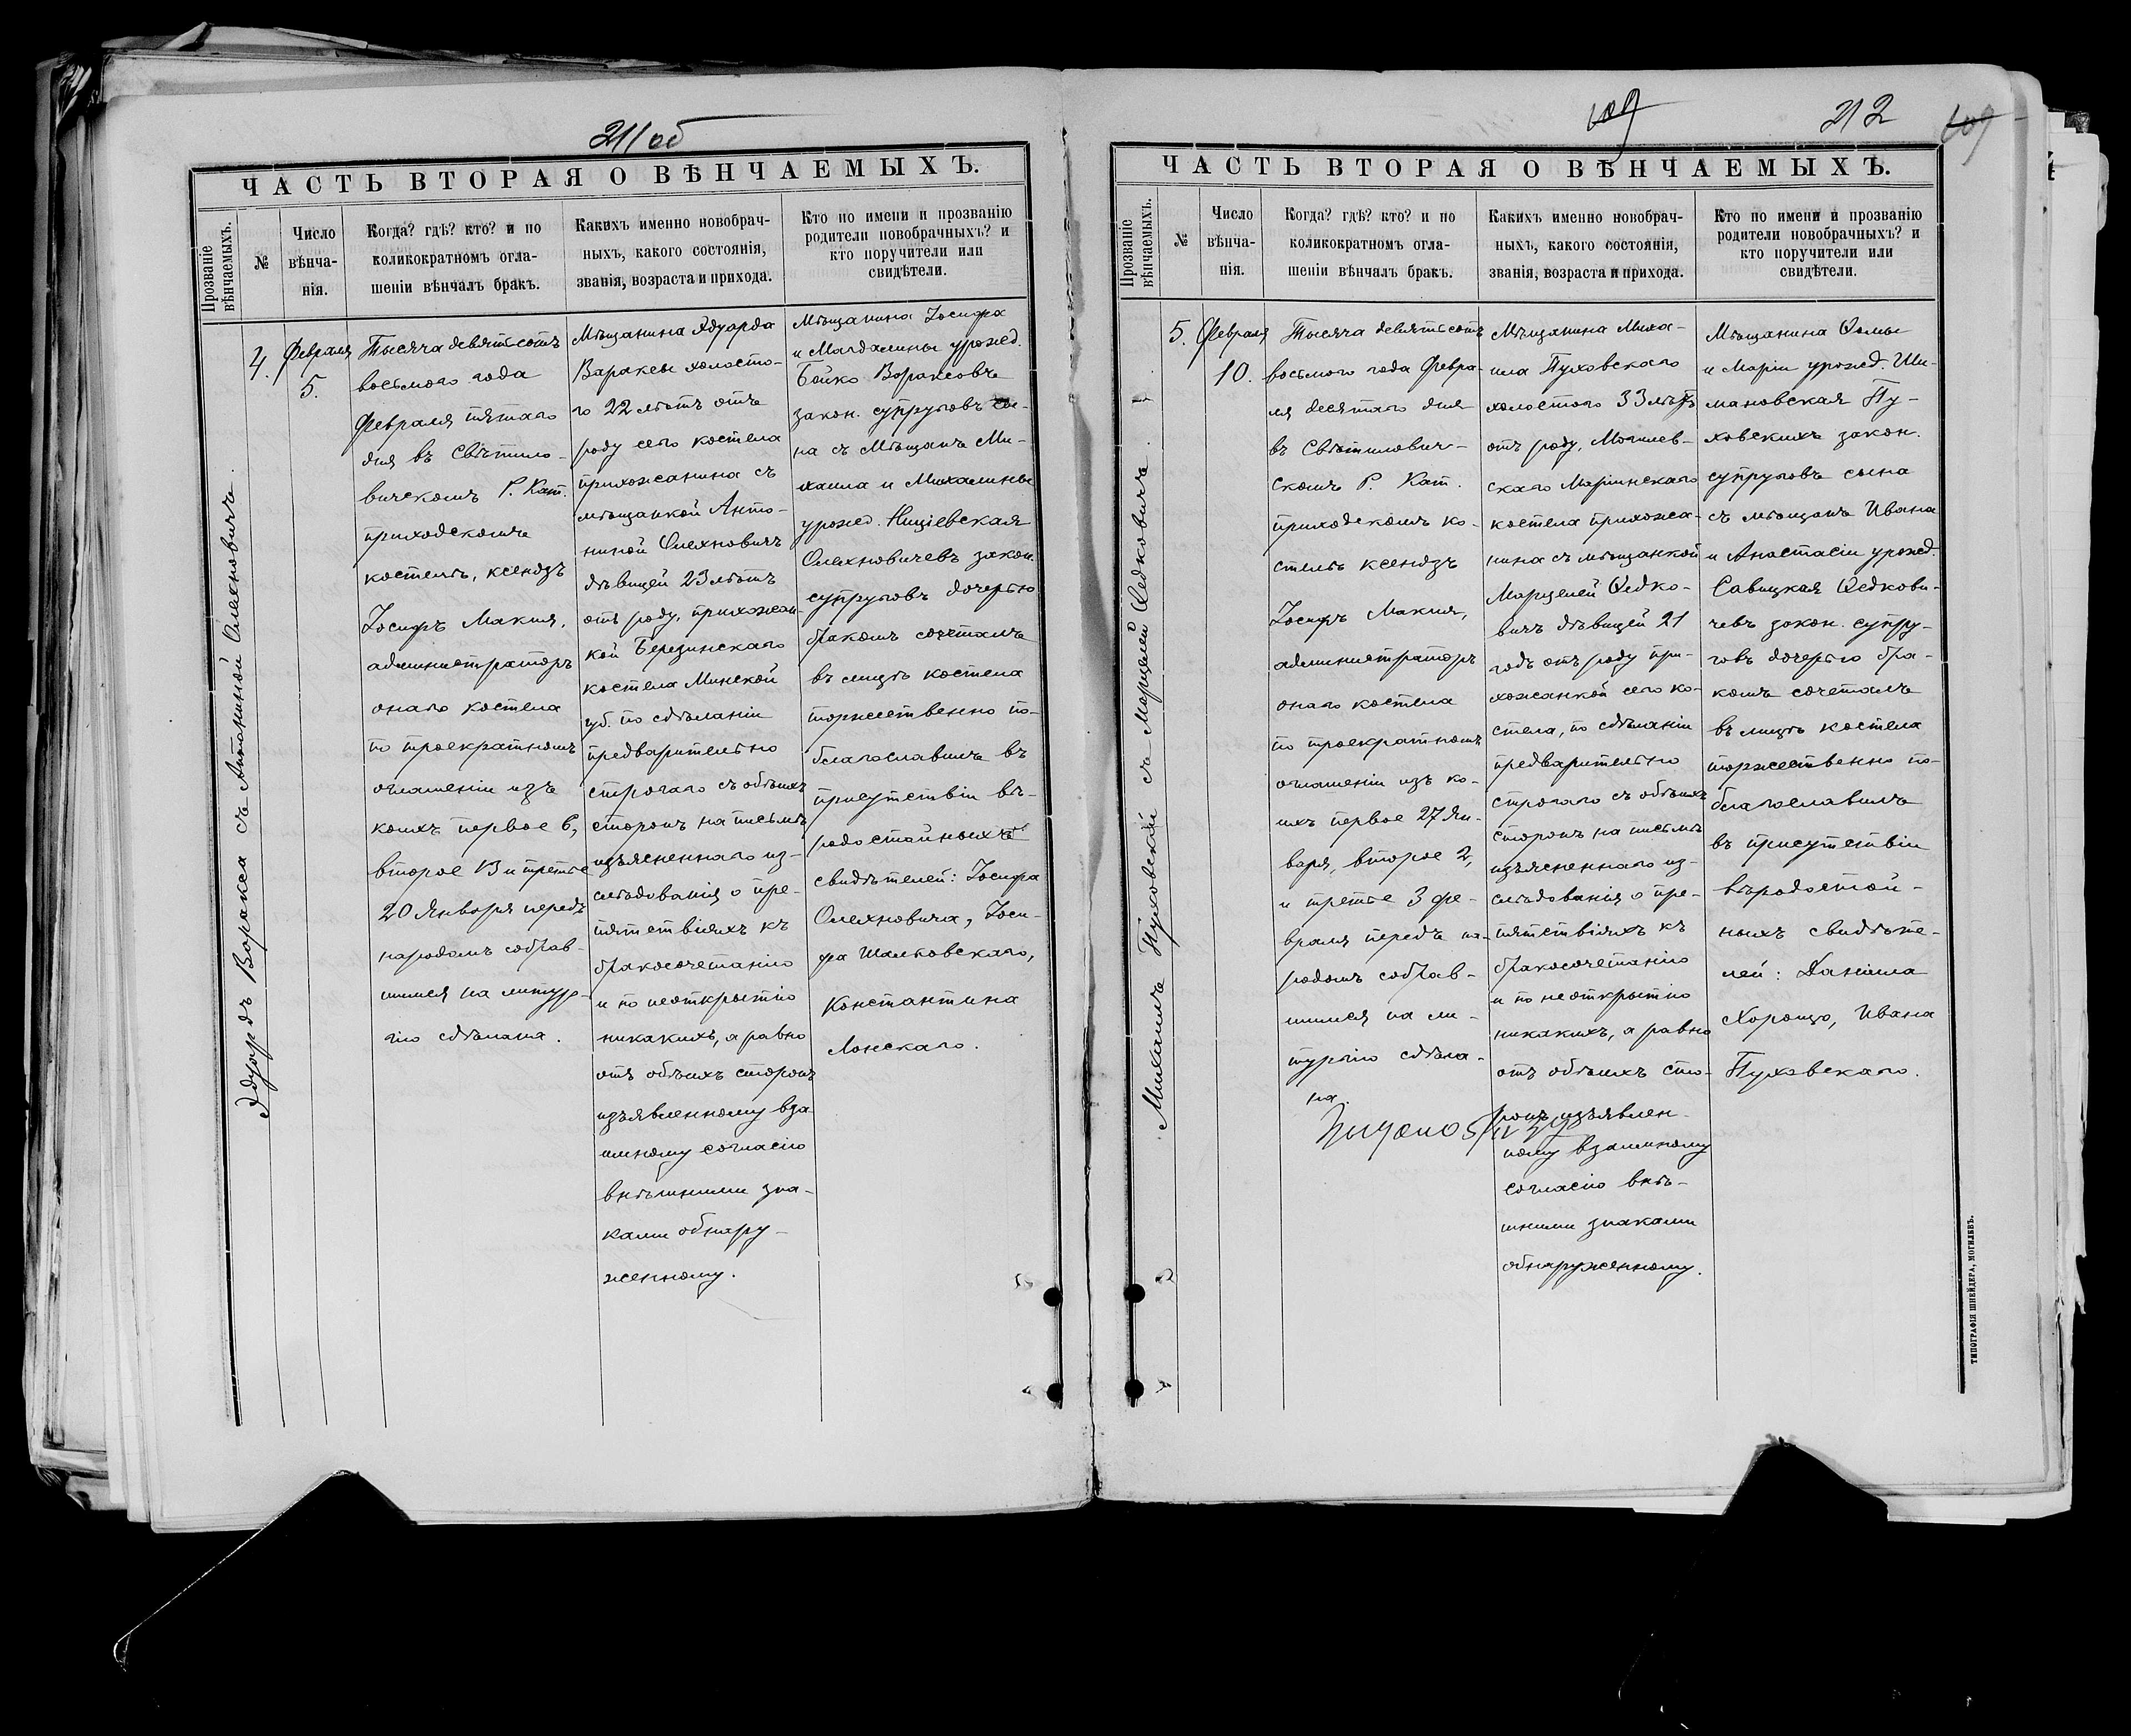 211 об
ЧАСТЬ ВТОРАЯ О ВѢНЧАЕМЫХЪ.
Прозваніе
вѣнчаемыхъ.
№
Число
вѣнча-
нія.
Когда? гдѣ? кто? и по
коликократномъ огла-
шеніи вѣнчалъ бракъ.
Какихъ именно новобрач-
ныхъ, какого состоянія,
званія, возраста и прихода.
Кто по имени и прозванію
родители новобрачныхъ? и
кто поручители или
свидѣтели.
Эдуардъ Воракса съ Антониной Олехновичъ.
4.
Февраля
5.
Тысяча девятьсотъ
восьмого года
Февраля пятаго
дня въ Свѣтило-
вичскомъ Р. Кат.
приходскомъ
костелѣ, ксендзъ
Іосифъ Макия,
администраторъ
онаго костела
по троекратномъ
оглашеніи изъ
коихъ первое 6,
второе 13 и третье
20 Января передъ
народомъ собрав-
шимся на литур-
гію сдѣлана.
Мѣщанина Эдуарда
Вараксы холосто-
го 22 лѣтъ отъ
роду сего костела
прихожанина съ
мѣщанкой Анто-
ниной Олехновичъ
дѣвицей 23 лѣтъ
отъ роду, прихожан-
кой Березинскаго
костела Минской
губ. по сдѣланіи
предварительно
строгаго съ обѣихъ
сторонъ на письмѣ
изъясненнаго из-
слѣдованія о пре-
пятствіяхъ къ
бракосочетанію
и по неоткрытію
никакихъ, а равно
отъ обѣихъ сторонъ
изъявленному вза-
имному согласію
внѣшними зна-
ками обнару-
женному.
Мѣщанина Іосифа
и Магдалины урожд.
Бойко Вораксовъ
закон. супруговъ сы-
на съ Мѣщанъ Ми-
хаила и Михалины
урожд. Ницієвская
Олехновичевъ закон.
супруговъ дочерью
бракомъ сочеталъ
въ лицѣ костела
торжественно по-
благославилъ въ
присутствіи вѣ-
родостойныхъ
свидѣтелей: Іосифа
Олехновича, Іоси-
фа Шалковскаго,
Константина
Лонскаго.
109
212
109
ЧАСТЬ ВТОРАЯ О ВѢНЧАЕМЫХЪ.
Прозваніе
вѣнчаемыхъ.
№
Число
вѣнча-
нія.
Когда? гдѣ? кто? и по
коликократномъ огла-
шеніи вѣнчалъ бракъ.
Какихъ именно новобрач-
ныхъ, какого состоянія,
званія, возраста и прихода.
Кто по имени и прозванію
родители новобрачныхъ? и
кто поручители или
свидѣтели.
Михаилъ Пуховскій съ Марцелей Ѳедковичъ.
5.
Февраля
10.
Тысяча девятьсотъ
восьмого года Февра-
ля десятаго дня
въ Свѣтилович-
скомъ Р. Кат.
приходскомъ ко-
стелѣ ксендзъ
Іосифъ Макия,
администраторъ
онаго костела
по троекратномъ
оглашеніи изъ ко-
ихъ первое 27 Ян-
варя, второе 2,
и третье 3 фе-
враля передъ на-
родомъ собрав-
шимся на ли-
тургію сдѣла-
на.
Мѣщанина Миха-
ила Пуховскаго
холостого 33 лѣтъ
отъ роду, Могилев-
скаго Маріинскаго
костела прихожа-
нина съ мѣщанкой
Марцелей Ѳедко-
вичъ дѣвицей 21
годъ отъ роду при-
хожанкой сего ко-
стела, по сдѣланіи
предварительно
строгаго съ обѣихъ
сторонъ на письмѣ
изъясненнаго из-
слѣдованія о пре-
пятствіяхъ къ
бракосочетанію
и по неоткрытію
никакихъ, а равно
отъ обѣихъ сто-
ронъ изъявлен-
ному взаимному
согласію внѣ-
шними знаками
обнаруженному.
Мѣщанина Ѳомы
и Маріи урожд. Ши-
мановская Пу-
ховскихъ закон.
супруговъ сына
съ мѣщанъ Ивана
и Анастасіи урожд.
Савицкая Ѳедкови-
чевъ закон. супру-
говъ дочерью бра-
комъ сочеталъ
въ лицѣ костела
торжественно по-
благославилъ
въ присутствіи
вѣродостой-
ныхъ свидѣте-
лей: Даніила
Хорощо, Ивана
Пуховскаго.
ТИПОГРАФІЯ ШНЕЙДЕРА, МОГИЛЕВЪ.